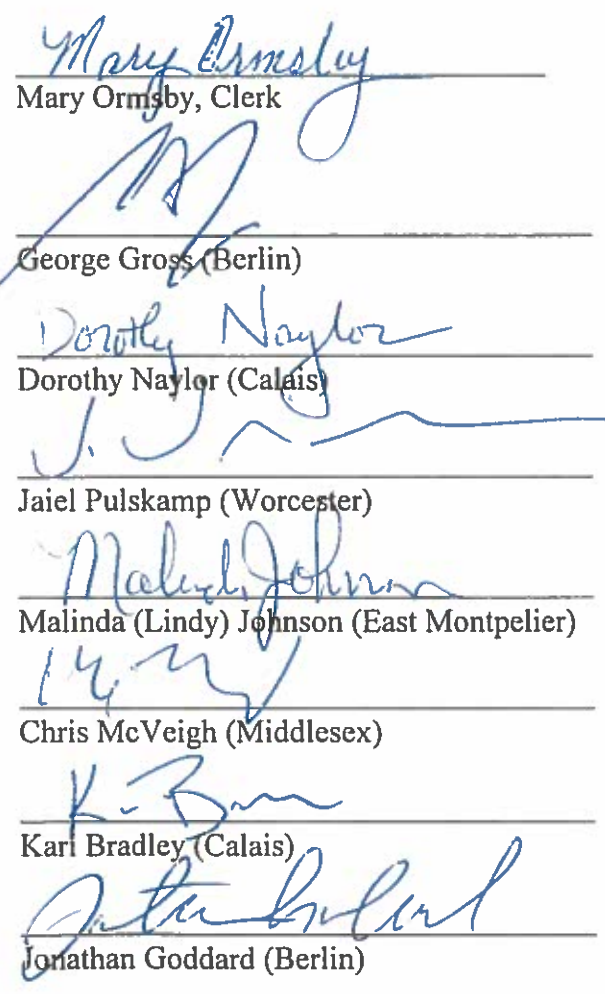 Mary Ormsby
Mary Ormsby, Clerk
George Gross (Berlin)
Dorothy Naylor
Dorothy Naylor (Calais)
J.
Jaiel Pulskamp (Worcester)
Malinda Johnson
Malinda (Lindy) Johnson (East Montpelier)
Chris McVeigh (Middlesex)
K.
Karl Bradley (Calais)
Jonathan Goddard (Berlin)